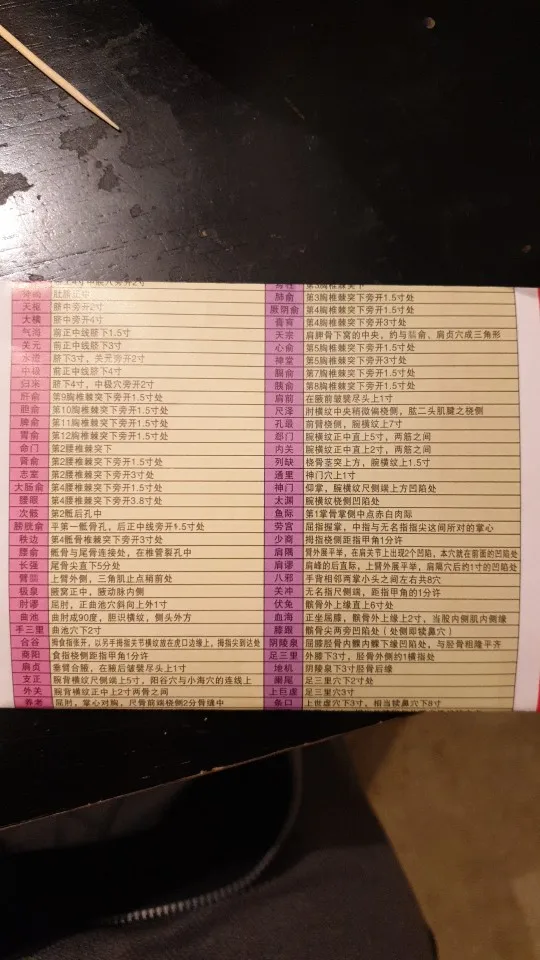 肚脐正中
天枢 脐中旁开2寸
大横 脐中旁开4寸
气海 前正中线脐下1.5寸
关元 前正中线脐下3寸
水道 脐下3寸，关元旁开2寸
中极 前正中线脐下4寸
归来 脐下4寸，中极穴旁开2寸
肝俞 第9胸椎棘突下旁开1.5寸处
胆俞 第10胸椎棘突下旁开1.5寸处
脾俞 第11胸椎棘突下旁开1.5寸处
胃俞 第12胸椎棘突下旁开1.5寸处
命门 第2腰椎棘突下
肾俞 第2腰椎棘突下旁开1.5寸处
志室 第2腰椎棘突下旁开3寸处
大肠俞 第4腰椎棘突下旁开1.5寸处
腰眼 第4腰椎棘突下旁开3.8寸处
次髎 第2骶后孔中
膀胱俞 平第一骶骨孔，后正中线旁开1.5寸处
秩边 第4骶骨椎棘突下旁开3寸处
腰俞 骶骨与尾骨连接处，在椎管裂孔中
长强 尾骨尖直下5分处
臂臑 上臂外侧，三角肌止点稍前处
极泉 腋窝正中，腋动脉内侧
肘髎 屈肘，正曲池穴斜向上外1寸
曲池 曲肘成90度，胆识横纹，侧头外方
手三里 曲池穴下2寸
合谷 拇食指张开，以另手拇指关节横纹放在虎口边缘上，拇指尖到达处
商阳 食指桡侧距指甲角1分许
肩贞 垂臂合腋，在腋后皱襞尽头上1寸
支正 腕背横纹尺侧端上5寸，阳谷穴与小海穴的连线上
外关 腕背横纹正中上2寸两骨之间
养老 屈肘，掌心对胸，尺骨前端桡侧2分骨缝中
肺俞 第3胸椎棘突下旁开1.5寸处
厥阴俞 第4胸椎棘突下旁开1.5寸处
膏肓 第4胸椎棘突下旁开3寸处
天宗 肩胛骨下窝的中央，约与臑俞、肩贞穴成三角形
心俞 第5胸椎棘突下旁开1.5寸处
神堂 第5胸椎棘突下旁开3寸处
膈俞 第7胸椎棘突下旁开1.5寸处
胰俞 第8胸椎棘突下旁开1.5寸处
肩前 在腋前皱襞尽头上1寸
尺泽 肘横纹中央稍微偏桡侧，肱二头肌腱之桡侧
孔最 前臂桡侧，腕横纹上7寸
郄门 腕横纹正中直上5寸，两筋之间
内关 腕横纹正中直上2寸，两筋之间
列缺 桡骨茎突上方，腕横纹上1.5寸
通里 神门穴上1寸
神门 仰掌，腕横纹尺侧端上方凹陷处
太渊 腕横纹桡侧凹陷处
鱼际 第1掌骨掌侧中点赤白肉际
劳宫 屈指握掌，中指与无名指指尖这间所对的掌心
少商 拇指桡侧距指甲角1分许
肩隅 臂外展平举，在肩关节上出现2个凹陷，本穴就在前面的凹陷处
肩谬 肩峰的后直际，上臂外展平举，肩隅穴后约1寸的凹陷处
八邪 手背相邻两掌小头之间左右共8穴
关冲 无名指尺侧端，距指甲角的1分许
伏兔 髌骨外上缘直上6寸处
血海 正坐屈膝，髌骨外上缘上2寸，当股内侧肌内侧缘
膝眼 髌骨尖两旁凹陷处（处侧即犊鼻穴）
阴陵泉 屈膝胫骨内髁内髁下缘凹陷处，与胫骨粗隆平齐
足三里 外膝下3寸，胫骨外侧约1横指处
地机 阴陵泉下3寸胫骨后缘
阑尾 足三里穴下2寸处
上巨虚 足三里穴3寸
条口 上世虚穴下3寸，相当犊鼻穴下8寸